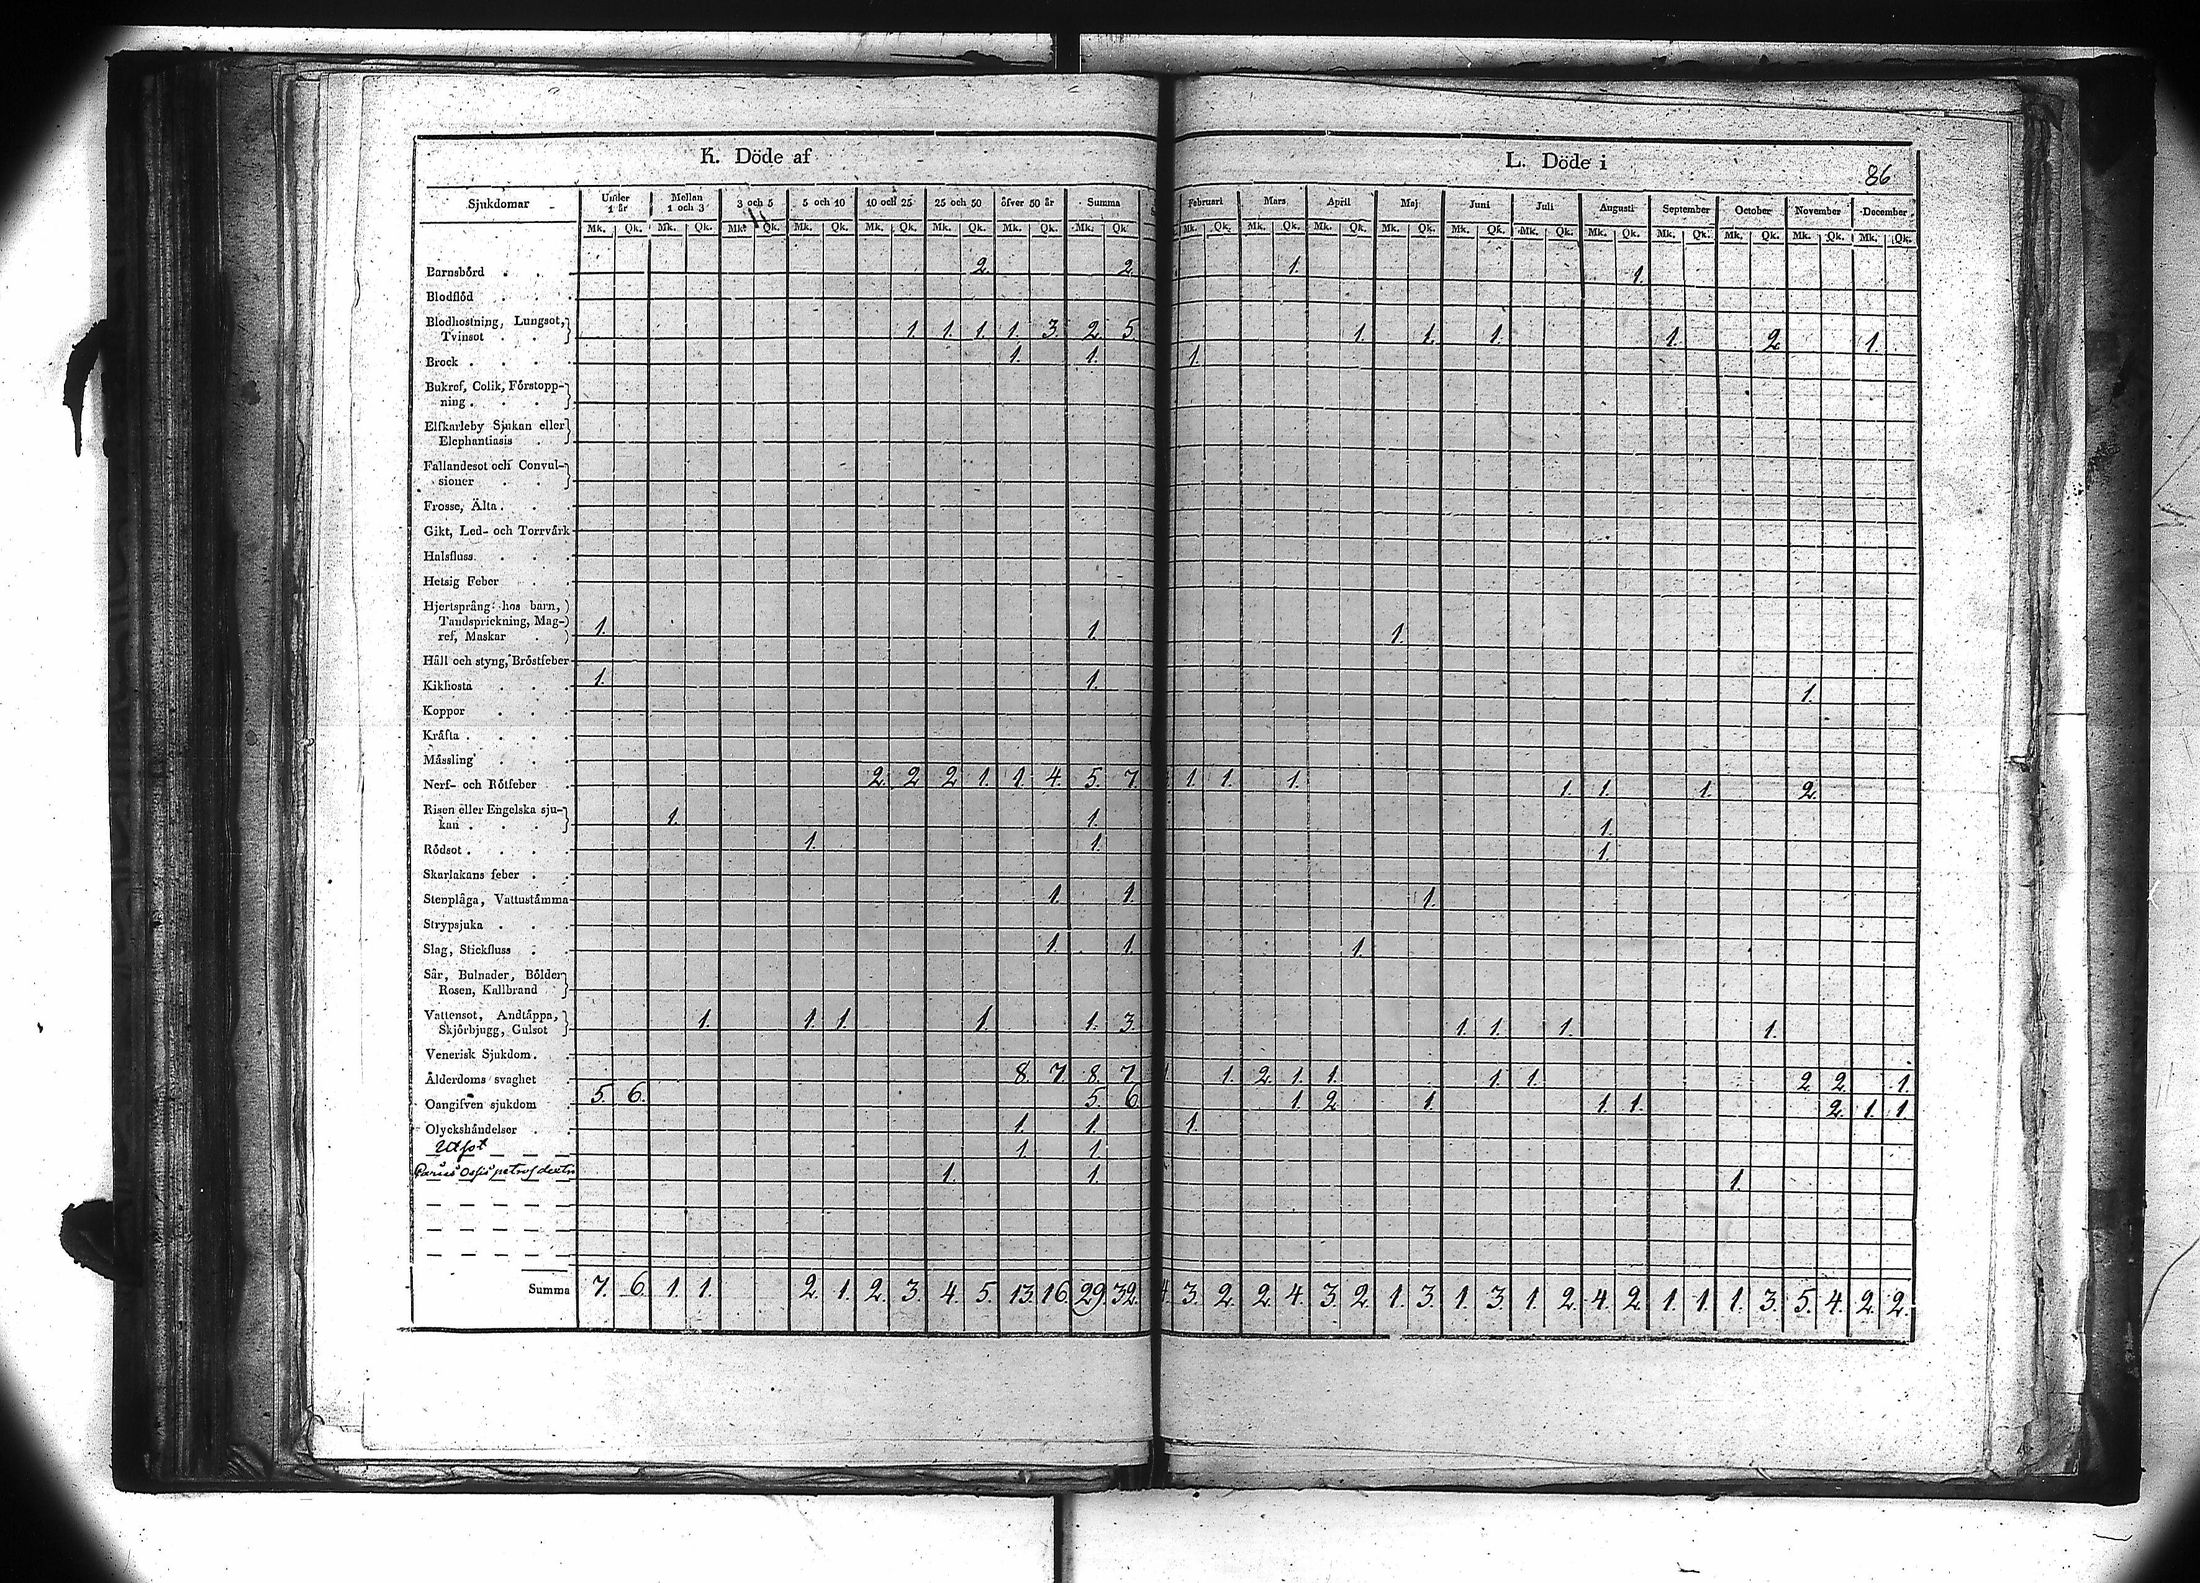 K. Döde af
L. Döde i
86
Sjukdomar Under 1 år Mellan 1 och 3 3 och 5 5 och 10 10 och 25 25 och 50 öfver 50 år Summa Februari Mars April Maj Juni Juli Augusti September October November December
Mk. Qk. Mk. Qk. Mk. Qk. Mk. Qk. Mk. Qk. Mk. Qk. Mk. Qk. Mk. Qk. Mk. Qk. Mk. Qk. Mk. Qk. Mk. Qk. Mk. Qk. Mk. Qk. Mk. Qk. Mk. Qk. Mk. Qk. Mk. Qk. Mk. Qk.
Barnsbörd . . 2. 2. 1. 1.
Blodflöd . . .
Blodhostning, Lungsot,
Tvinsot . . 1. 1. 1. 1. 3. 2. 5. 1. 1. 1. 1. 2. 1.
Brock . . . . 1. 1. 1.
Bukref, Colik, Förstopp-
ning . . .
Elfkarleby Sjukan eller
Elephantiasis .
Fallandesot och Convul-
sioner . .
Frosse, Älta . . .
Gikt, Led- och Torrvärk
Halsfluss . . .
Hetsig Feber . .
Hjertsprång hos barn,
Tandsprickning, Mag-
ref, Maskar . 1. 1. 1.
Håll och styng, Bröstfeber
Kikhosta . . . 1. 1. 1.
Koppor . . .
Kräfta . . . .
Mässling . . .
Nerf- och Rötfeber . 2. 2. 2. 1. 1. 4. 5. 7. 1. 1. 1. 1. 1. 1. 2.
Risen eller Engelska sju-
kan . . . 1. 1. 1.
Rödsot . . . . 1. 1. 1.
Skarlakans feber . .
Stenplåga, Vattustämma 1. 1. 1.
Strypsjuka . . .
Slag, Stickfluss . . 1. 1. 1.
Sår, Bulnader, Bölder
Rosen, Kallbrand
Vattensot, Andtäppa,
Skjörbjugg, Gulsot 1. 1. 1. 1. 1. 3. 1. 1. 1. 1.
Venerisk Sjukdom . .
Ålderdoms svaghet . 8. 7. 8. 7. 1. 2. 1. 1. 1. 1. 2. 2. 1.
Oangifven sjukdom . 5. 6. 5. 6. 1. 2. 1. 1. 1. 2. 1. 1.
Olyckshändelser . . 1. 1. 1.
Utsot 1. 1.
Ossis petros dextr 1. 1. 1.
Summa 7. 6. 1. 1. 2. 1. 2. 3. 4. 5. 13. 16. 29. 32. 4. 3. 2. 2. 4. 3. 2. 1. 3. 1. 3. 1. 2. 4. 2. 1. 1. 1. 3. 5. 4. 2. 2.